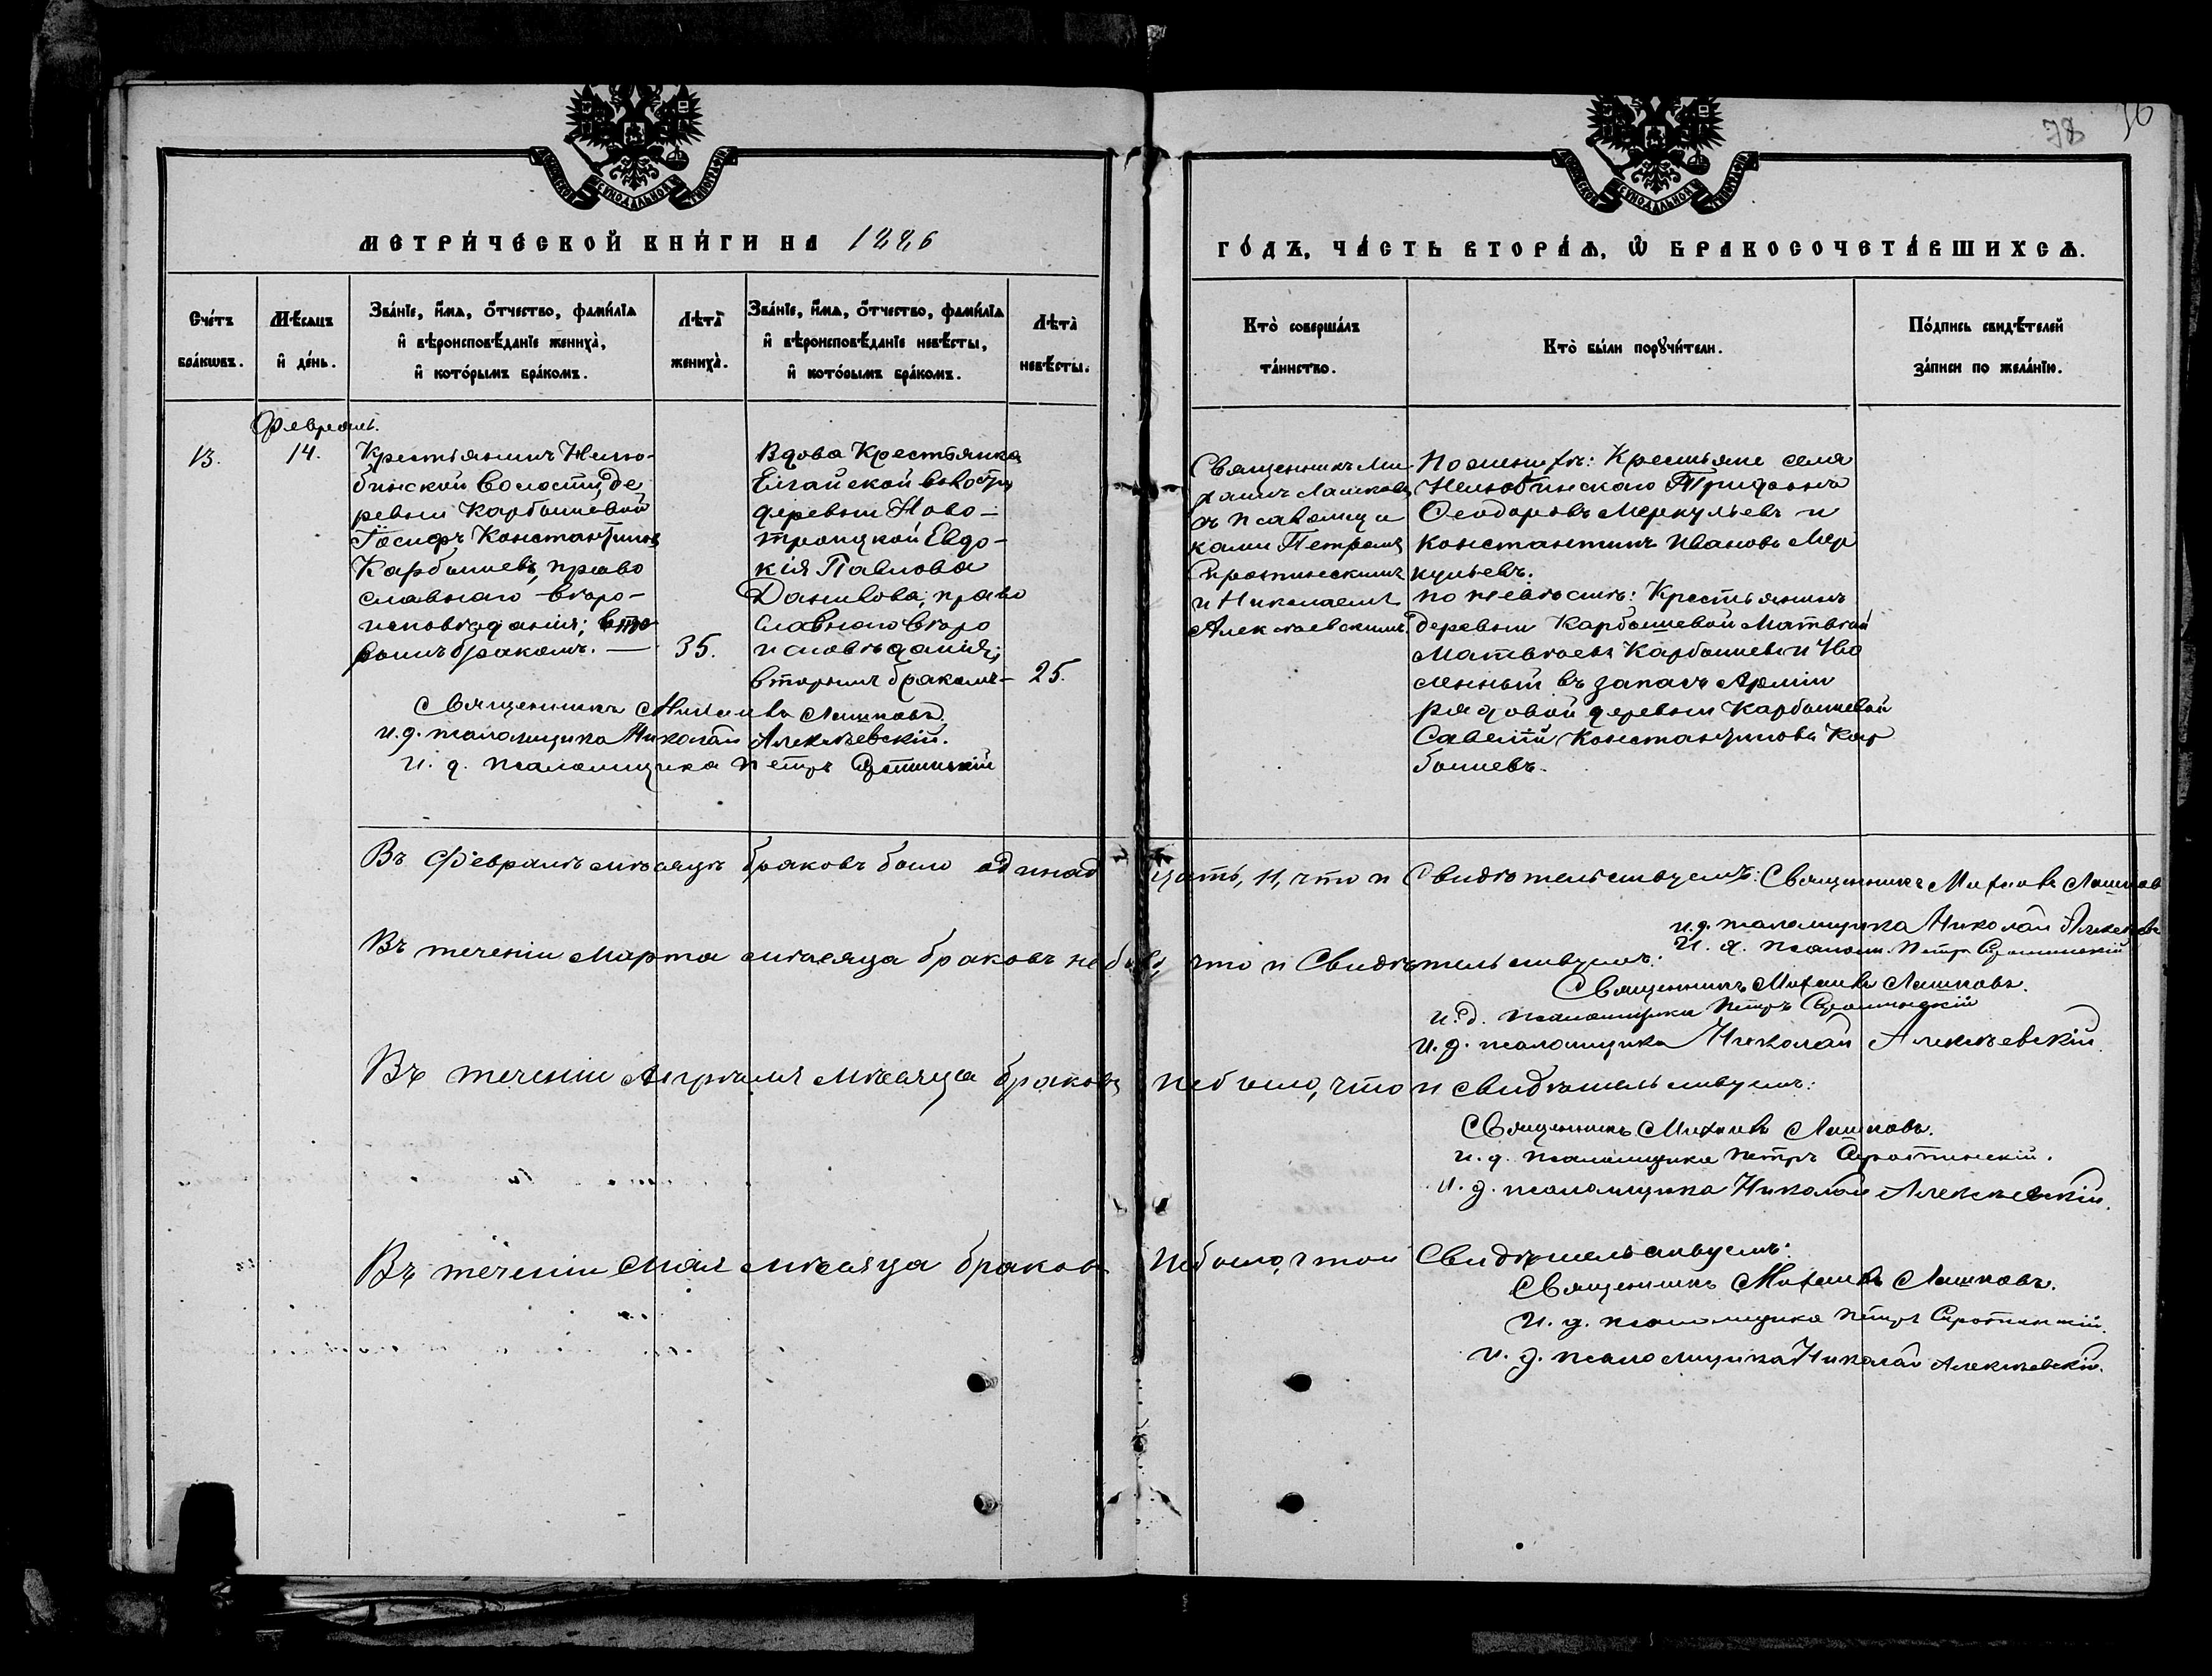 78
МЕТРИ́ЧЕСКОЙ КНИ́ГИ НА 1886
ГО́ДЪ, ЧА́СТЬ ВТОРА́Ѧ, Ѡ БРАКОСОЧЕТА́ВШИХСѦ.
Сче́тъ бра́кѡвъ.
Мѣ́сѧцъ и҆ де́нь.
Зва́нїе, и҆́мѧ, ѻ҆́тчество, фами́лїѧ
и҆ вѣроисповѣ́данїе жениха̀,
и҆ кото́рымъ бра́комъ.
Лѣта̀ жениха̀.
Зва́нїе, и҆́мѧ, ѻ҆́тчество, фами́лїѧ
и҆ вѣроисповѣ́данїе невѣ́сты,
и҆ кото́рымъ бра́комъ.
Лѣта̀ невѣ́сты.
Кто̀ соверша́лъ
та́инство.
Кто̀ бы́ли порꙋчи́тели.
По́дпись свидѣ́телей
за́писи по жела́нїю.
Февраль.
13.
14.
Крестьянинъ Нелю-
бинской волости, де
ревни Карбышевой
Іосифъ Константиновъ
Карбышевъ, право
славнаго вѣро-
исповѣданія; вто
рымъ бракомъ. —
35.
Вдова Крестьянка
Елгайской волости
деревни Ново-
троицкой Евдо-
кія Павлова
Данилова, право
славнаго вѣро
исповѣданія;
вторымъ бракомъ-
25.
Священникъ Михаилъ Лашковъ.
и. д. псаломщика Николай Алексѣевскій.
И. д. псаломщика Петръ Сиротинскій
Священникъ Ми
хаилъ Лашковъ
съ псаломщи
ками Петромъ
Сиротинскимъ
и Николаемъ
Алексѣевскимъ.
По женихѣ: Крестьяне села
Нелюбинскаго Трифонъ
Ѳеодоровъ Меркульевъ и
Константинъ Ивановъ Мер
кульевъ.
по невѣстѣ: Крестьянинъ
деревни Карбышевой Матвѣй
Матвѣевъ Карбышевъ и Уво
ленный въ запасъ Арміи
рядовой деревни Карбышевой
Савелій Константиновъ Кар
бышевъ.
Въ Февралѣ мѣсяцѣ браковъ было одинадцать, 11, что и Свидѣтельствуемъ: Священникъ Михаилъ Лашковъ
и. д. псаломщика Николай Алексѣевс
И. д. псаломщ. Петръ Сиротинскій
Въ теченіи Марта мѣсяца браковъ не было, что и Свидѣтельствуемъ:
Священникъ Михаилъ Лашковъ.
и. д. псаломщика Петръ Сиротинскій
и. д. псаломщика Николай Алексѣевскій.
Въ теченіи Апрѣля мѣсяца браковъ не было, что и свидѣтельствуемъ:
Священникъ Михаилъ Лашковъ.
и. д. псаломщика Петръ Сиротинскій.
и. д. псаломщика Николай Алексѣевскій.
Въ теченіи Мая мѣсяца браковъ не было, что и Свидѣтельствуемъ:
Священникъ Михаилъ Лашковъ.
И. д. псаломщика Петръ Сиротинскій.
и. д. псаломщика Николай Алексѣевскій.